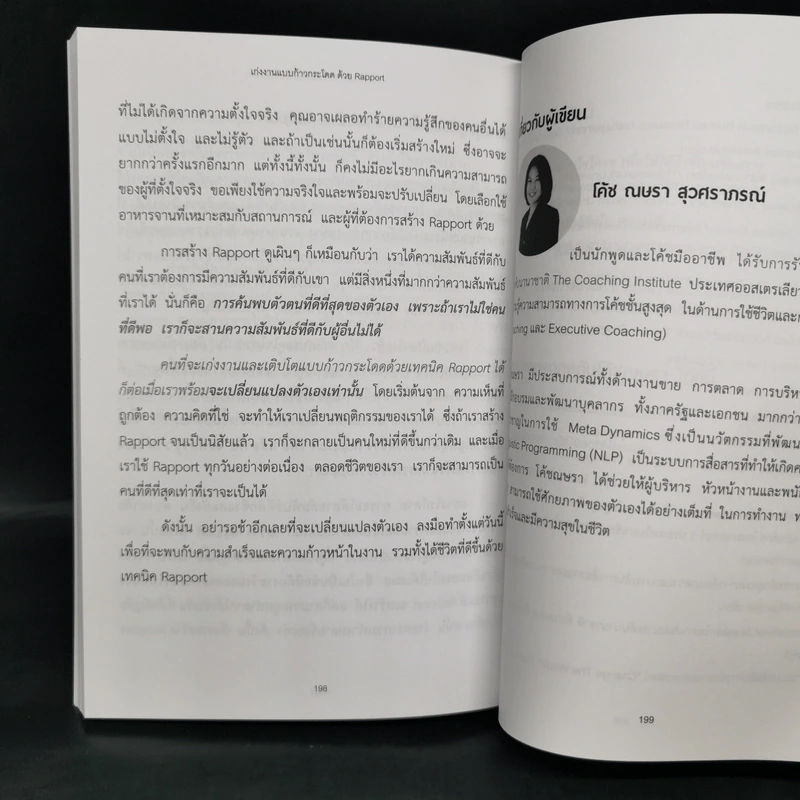 เก่งงานแบบก้าวกระโดด ด้วย Rapport
ที่ไม่ได้เกิดจากความตั้งใจจริง คุณอาจเผลอทำร้ายความรู้สึกของคนอื่นได้
แบบไม่ตั้งใจ และไม่รู้ตัว และถ้าเป็นเช่นนั้นก็ต้องเริ่มสร้างใหม่ ซึ่งอาจจะ
ยากกว่าครั้งแรกอีกมาก แต่ทั้งนี้ทั้งนั้น ก็คงไม่มีอะไรยากเกินความสามารถ
ของผู้ที่ตั้งใจจริง ขอเพียงใช้ความจริงใจและพร้อมจะปรับเปลี่ยน โดยเลือกใช้
อาหารจานที่เหมาะสมกับสถานการณ์ และผู้ที่ต้องการสร้าง Rapport ด้วย
การสร้าง Rapport ดูเผินๆ ก็เหมือนกับว่า เราได้ความสัมพันธ์ที่ดีกับ
คนที่เราต้องการมีความสัมพันธ์ที่ดีกับเขา แต่มีสิ่งหนึ่งที่มากกว่าความสัมพันธ์
ที่เราได้ นั่นก็คือ การค้นพบตัวตนที่ดีที่สุดของตัวเอง เพราะถ้าเราไม่ใช่คน
ที่ดีพอ เราก็จะสานความสัมพันธ์ที่ดีกับผู้อื่นไม่ได้
คนที่จะเก่งงานและเติบโตแบบก้าวกระโดดด้วยเทคนิค Rapport ได้
ก็ต่อเมื่อเราพร้อมจะเปลี่ยนแปลงตัวเองเท่านั้น โดยเริ่มต้นจาก ความเห็นที่
ถูกต้อง ความคิดที่ใช่ จะทำให้เราเปลี่ยนพฤติกรรมของเราได้ ซึ่งถ้าเราสร้าง
Rapport จนเป็นนิสัยแล้ว เราก็จะกลายเป็นคนใหม่ที่ดีขึ้นกว่าเดิม และเมื่อ
เราใช้ Rapport ทุกวันอย่างต่อเนื่อง ตลอดชีวิตของเรา เราก็จะสามารถเป็น
คนที่ดีที่สุดเท่าที่เราจะเป็นได้
ดังนั้น อย่ารอช้าอีกเลยที่จะเปลี่ยนแปลงตัวเอง ลงมือทำตั้งแต่วันนี้
เพื่อที่จะพบกับความสำเร็จและความก้าวหน้าในงาน รวมทั้งได้ชีวิตที่ดีขึ้นด้วย
เทคนิค Rapport
198
กี่ยวกับผู้เขียน
โค้ช ณษรา สุวศราภรณ์
เป็นนักพูดและโค้ชมืออาชีพ ได้รับการรั
The Coaching Institute ประเทศออสเตรเลีย
ความสามารถทางการโค้ชชั้นสูงสุด ในด้านการใช้ชีวิตและ
และ Executive Coaching)
มีประสบการณ์ทั้งด้านงานขาย การตลาด การบริห
อบรมและพัฒนาบุคลากร ทั้งภาครัฐและเอกชน มากกว่า
ในการใช้ Meta Dynamics ซึ่งเป็นนวัตกรรมที่พัฒน
Programming (NLP) เป็นระบบการสื่อสารที่ทำให้เกิด
โค้ชณษรา ได้ช่วยให้ผู้บริหาร หัวหน้างานและพนั
สามารถใช้ศักยภาพของตัวเองได้อย่างเต็มที่ ในการทำงาน
และมีความสุขในชีวิต
199